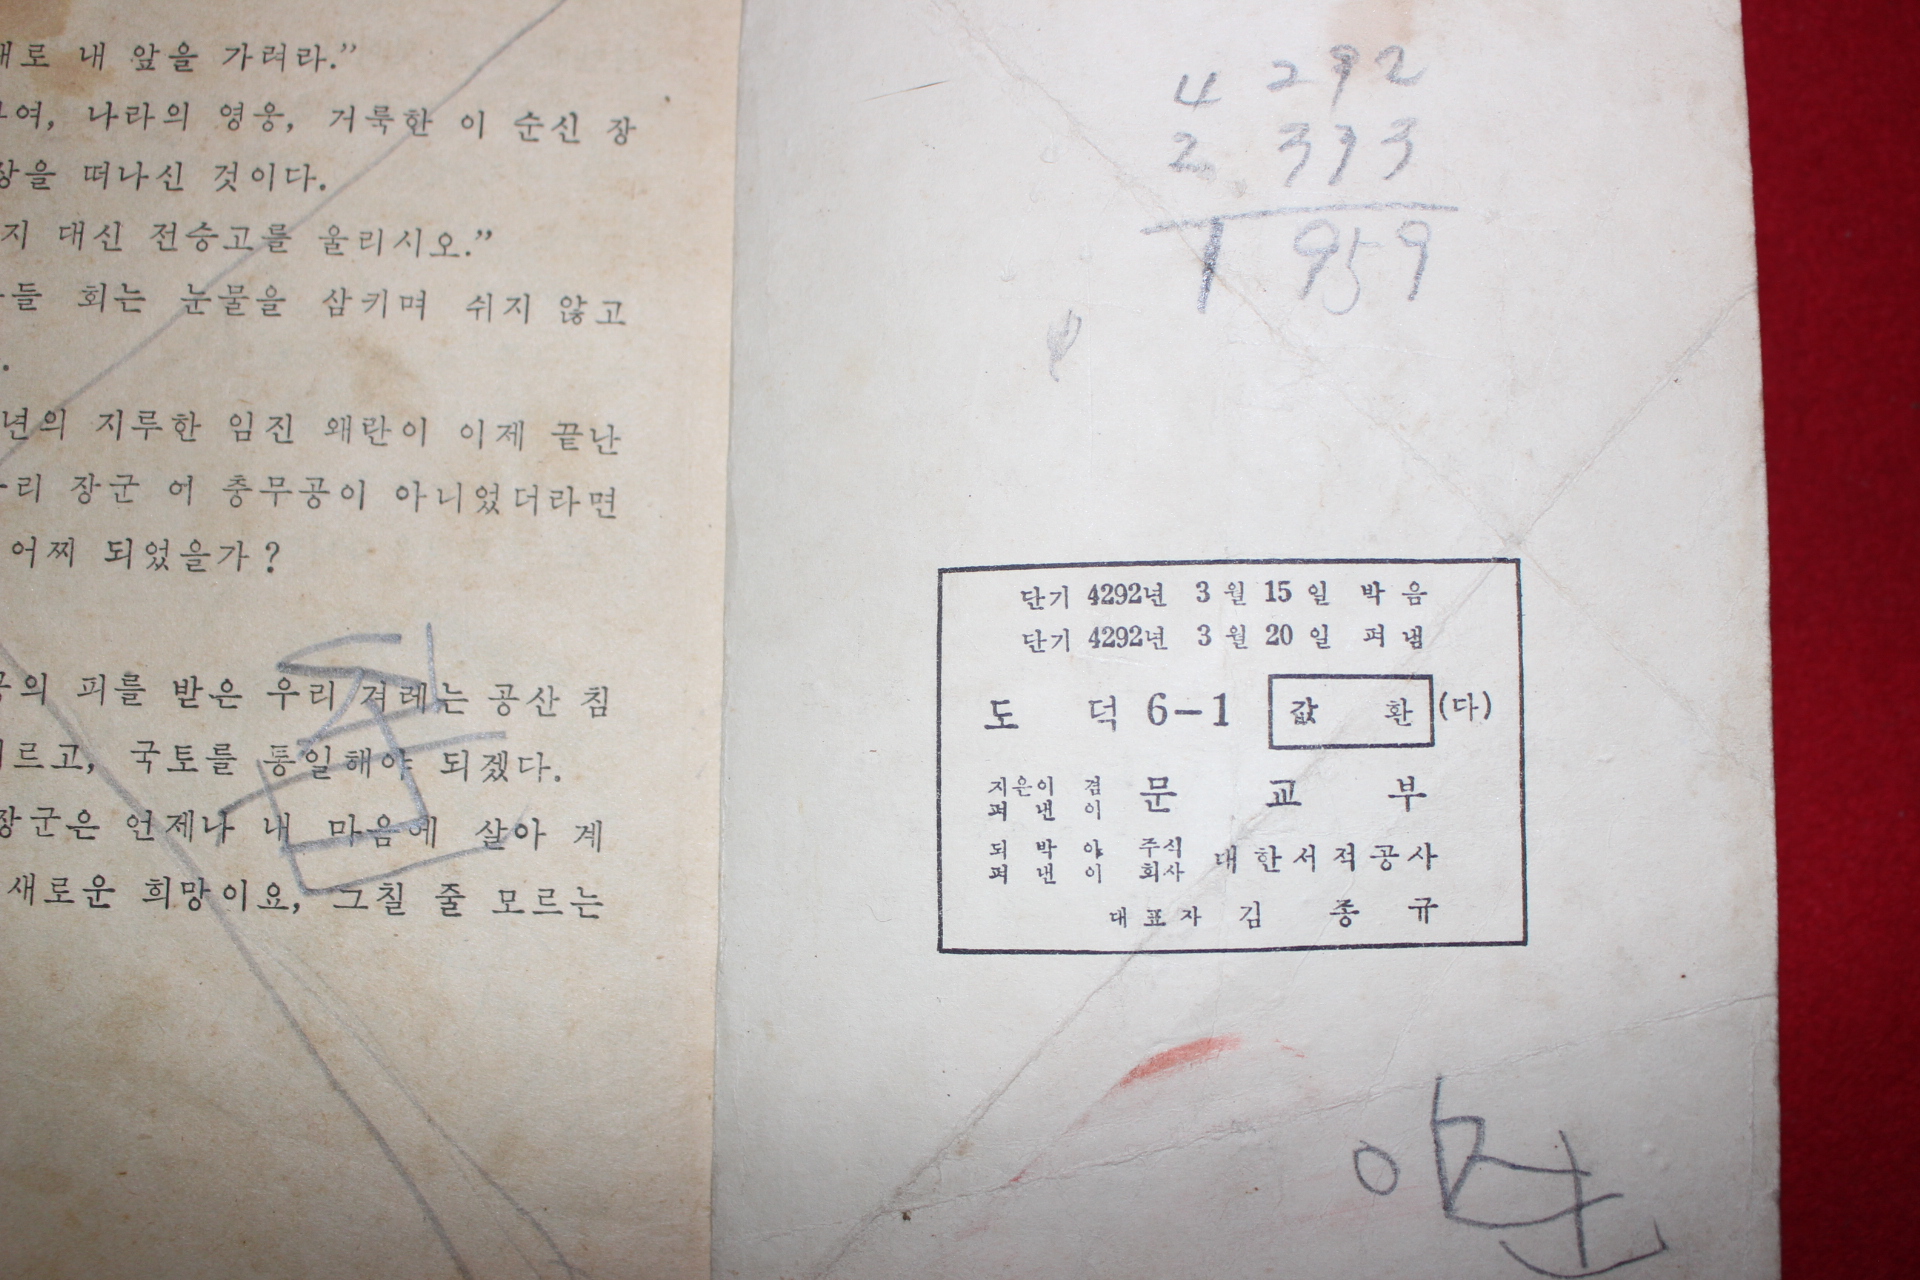 내 앞을 가려라.”
나라의 영웅, 거룩한 이 순신 장
떠나신 것이다.
대신 전승고를 울리시오.”
회는 눈물을 삼키며 쉬지 않고
년의 지루한 임진 왜란이 이제 끝난
장군 어 충무공이 아니었더라면
어찌 되었을가?
피를 받은 우리 겨레는 공산 침
국토를 통일해야 되겠다.
장군은 언제나 내 마음에 살아 계
새로운 희망이요, 그칠 줄 모르는
4 292
2 333
1 959
단기 4292년 3월 15일 박음
단기 4292년 3월 20일 펴냄
도덕 6-1 값 환 (다)
지은이 겸 펴낸이 문교부
되박아 펴낸이 주식회사 대한서적공사
대표자 김종규